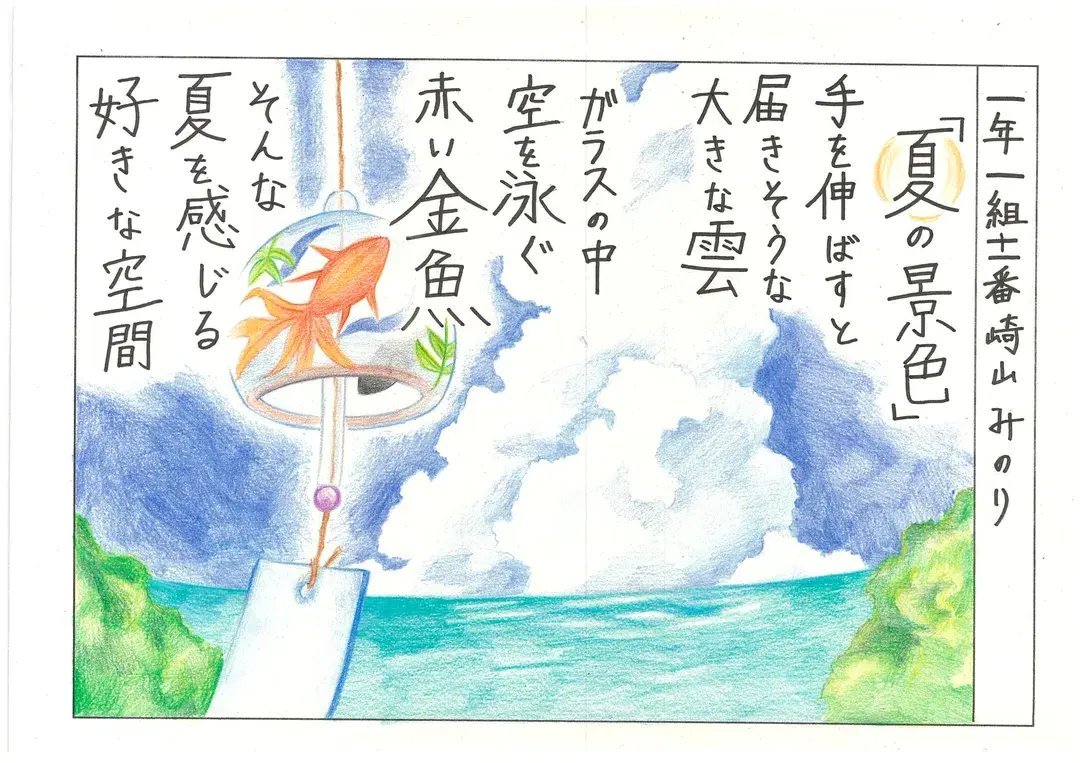 一年一組十一番崎山みのり
「夏の景色」
手を伸ばすと
届きそうな
大きな雲
ガラスの中
空を泳ぐ
赤い金魚
そんな
夏を感じる
好きな空間